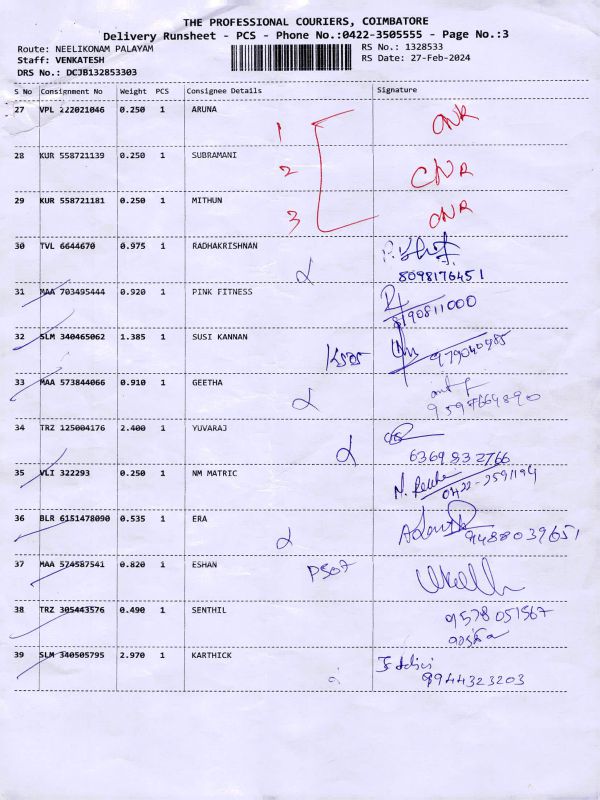 THE PROFESSIONAL COURIERS, COIMBATORE
Delivery Runsheet - PCS - Phone No.:0422-3505555 - Page No.:3
Route: NEELIKONAM PALAYAM RS No.: 1328533
Staff: VENKATESH RS Date: 27-Feb-2024
DRS No.: DCJB132853303
S No Consignment No Weight PCS Consignee Details Signature
27 VPL 222021046 0.250 1 ARUNA
1 CNR
28 KUR 558721139 0.250 1 SUBRAMANI
2 CNR
29 KUR 558721181 0.250 1 MITHUN
3 CNR
30 TVL 6644670 0.975 1 RADHAKRISHNAN
8098176451
31 MAA 703495444 0.920 1 PINK FITNESS
8190811000
32 SLM 340465062 1.385 1 SUSI KANNAN
33 MAA 573844066 0.910 1 GEETHA
34 TRZ 125004176 2.400 1 YUVARAJ
6369832766
35 VLI 322293 0.250 1 NM MATRIC
0422-2591194
36 BLR 6151478090 0.535 1 ERA
9488039651
37 MAA 574587541 0.820 1 ESHAN
38 TRZ 305443576 0.490 1 SENTHIL
9578051567
39 SLM 340505795 2.970 1 KARTHICK
9944323203